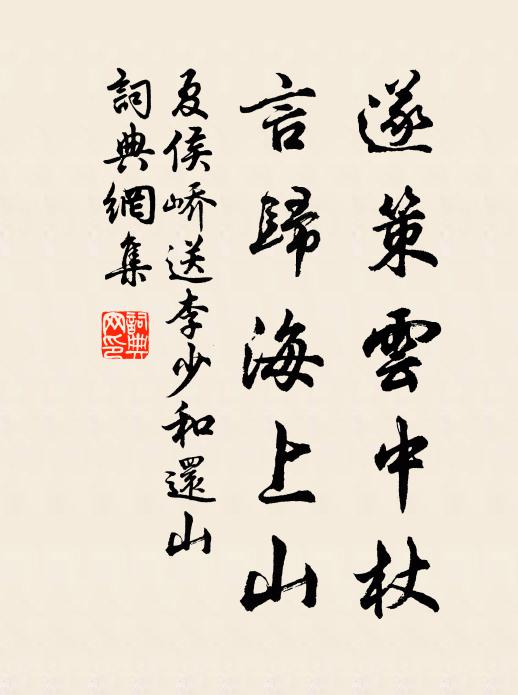 遂策雲中杖
言歸海上山
夏侯嶠送李少和還山
詞典網集
詞典網印